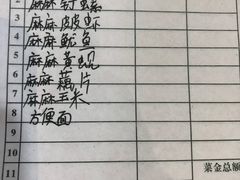 麻麻钉螺
2 麻麻皮皮虾
3 麻麻鱿鱼
4
5 麻麻黄蚬
6 麻麻藕片
7 麻麻玉米
8 方便面
9
10
11 菜金总额